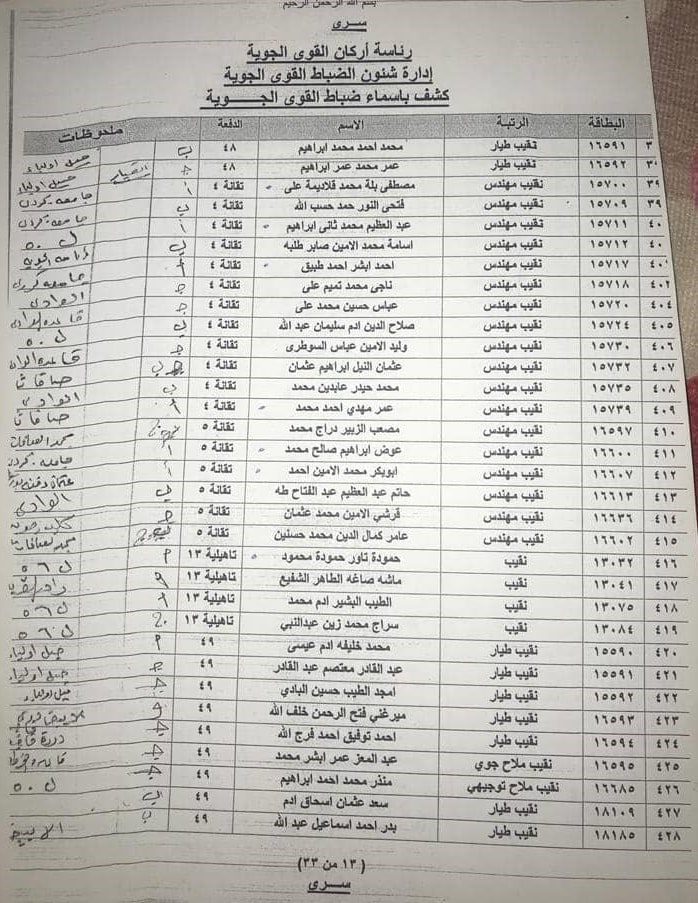 بسم الله الرحمن الرحيم
سرى
رئاسة أركان القوى الجوية
إدارة شئون الضباط القوى الجوية
كشف باسماء ضباط القوى الجوية
البطاقة الرتبة الاسم الدفعة ملحوظات
١٦٥٩١ نقيب طيار محمد احمد محمد ابراهيم ٤٨ ب جبل اولياء
١٦٥٩٢ نقيب طيار عمر محمد عمر ابراهيم ٤٨ جبل اولياء
١٥٧٠٠ نقيب مهندس مصطفى بلة محمد قلاديمة على تقانة ٤ أ جامعه كررى
١٥٧٠٩ نقيب مهندس فتحى النور حمد حسب الله تقانة ٤ ب جامعه كررى
٤٠ ١٥٧١١ نقيب مهندس عبد العظيم محمد ثانى ابراهيم تقانة ٤ أ ل ٥٠
٤٠ ١٥٧١٢ نقيب مهندس اسامة محمد الامين صابر طلبه تقانة ٤ ب
٤٠١ ١٥٧١٧ نقيب مهندس احمد ابشر احمد طبيق تقانة ٤ أ جامعه كررى
٤٠٢ ١٥٧١٨ نقيب مهندس ناجى محمد تميم على تقانة ٤ ج الوادى
٤٠٤ ١٥٧٢٠ نقيب مهندس عباس حسين محمد على تقانة ٤ ج قاعده الوادى
٤٠٥ ١٥٧٢٤ نقيب مهندس صلاح الدين ادم سليمان عبد الله تقانة ٤ ب ل ٥٠
٤٠٦ ١٥٧٣٠ نقيب مهندس وليد الامين عباس السوطرى تقانة ٤ ج قاعده الوادى
٤٠٧ ١٥٧٣٢ نقيب مهندس عثمان النيل ابراهيم عثمان تقانة ٤ ب صافات
٤٠٨ ١٥٧٣٥ نقيب مهندس محمد حيدر عابدين محمد تقانة ٤ ب الوادى
٤٠٩ ١٥٧٣٩ نقيب مهندس عمر مهدي احمد محمد تقانة ٤ أ صافات
٤١٠ ١٦٥٩٧ نقيب مهندس مصعب الزبير دراج محمد تقانة ٥ مجمع الصافات
٤١١ ١٦٦٠٠ نقيب مهندس عوض ابراهيم صالح محمد تقانة ٥ أ جامعه كررى
٤١٢ ١٦٦٠٧ نقيب مهندس ابوبكر محمد الامين احمد تقانة ٥ أ عثمان دقنه
٤١٣ ١٦٦١٣ نقيب مهندس حاتم عبد العظيم عبد الفتاح طه تقانة ٥ ب الوادى
٤١٤ ١٦٦٣٦ نقيب مهندس قرشي الامين محمد عثمان تقانة ٥ ج
٤١٥ ١٦٦٠٢ نقيب مهندس عامر كمال الدين محمد حسنين تقانة ٥ مجمع الصافات
٤١٦ ١٣٠٣٢ نقيب حمودة تاور حمودة محمود تاهيلية ١٣ ل ٥٦
٤١٧ ١٣٠٤١ نقيب ماشه صاغه الطاهر الشفيع تاهيلية ١٣
٤١٨ ١٣٠٧٥ نقيب الطيب البشير ادم محمد تاهيلية ١٣ ل ٥٦
٤١٩ ١٣٠٨٤ نقيب سراج محمد زين عبدالنبي تاهيلية ١٣ ل ٥٦
٤٢٠ ١٥٥٩٠ نقيب طيار محمد خليفه ادم عيسى ٤٩ جبل اولياء
٤٢١ ١٥٥٩١ نقيب طيار عبد القادر معتصم عبد القادر ٤٩ ج جبل اولياء
٤٢٢ ١٥٥٩٢ نقيب طيار امجد الطيب حسين البادي ٤٩ ج جبل اولياء
٤٢٣ ١٦٥٩٣ نقيب طيار ميرغني فتح الرحمن خلف الله ٤٩
٤٢٤ ١٦٥٩٤ نقيب طيار احمد توفيق احمد فرج الله ٤٩ ج
٤٢٥ ١٦٥٩٥ نقيب ملاح جوي عبد المعز عمر ابشر محمد ٤٩ ج
٤٢٦ ١٦٦٨٥ نقيب ملاح توجيهي منذر محمد احمد ابراهيم ٤٩ ج ل ٥٠
٤٢٧ ١٨١٠٩ نقيب طيار سعد عثمان اسحاق ادم ٤٩ ب
٤٢٨ ١٨١٨٥ نقيب طيار بدر احمد اسماعيل عبد الله ٤٩ ب الابيض
(١٣ من ٣٣)
سرى